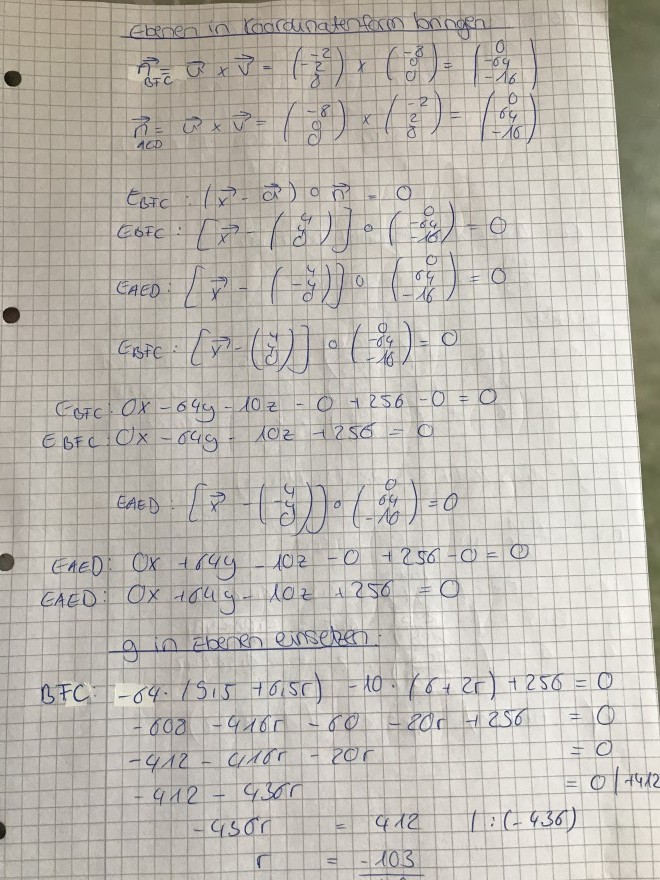 Ebenen in Koordinatenform bringen
n⃗ BFC = u⃗ × v⃗ = (-2 -2 8) × (-8 0 0) = (0 -64 -16)
n⃗ AED = u⃗ × v⃗ = (-8 0 0) × (-2 2 8) = (0 64 -16)
EBFC : (x⃗ - a⃗) ∘ n⃗ = 0
EBFC : [x⃗ - (4 4 0)] ∘ (0 -64 -16) = 0
EAED : [x⃗ - (4 -4 0)] ∘ (0 64 -16) = 0
EBFC : [x⃗ - (4 4 0)] ∘ (0 -64 -16) = 0
EBFC : 0x - 64y - 10z - 0 + 256 - 0 = 0
EBFC : 0x - 64y - 10z + 256 = 0
EAED : [x⃗ - (4 -4 0)] ∘ (0 64 -16) = 0
EAED : 0x + 64y - 10z - 0 + 256 - 0 = 0
EAED : 0x + 64y - 10z + 256 = 0
g in Ebenen einsetzen:
BFC: -64 · (9,5 + 6,5r) - 10 · (6 + 2r) + 256 = 0
-608 - 416r - 60 - 20r + 256 = 0
-412 - 416r - 20r = 0
-412 - 436r = 0 | +412
-436r = 412 | : (-436)
r = -103